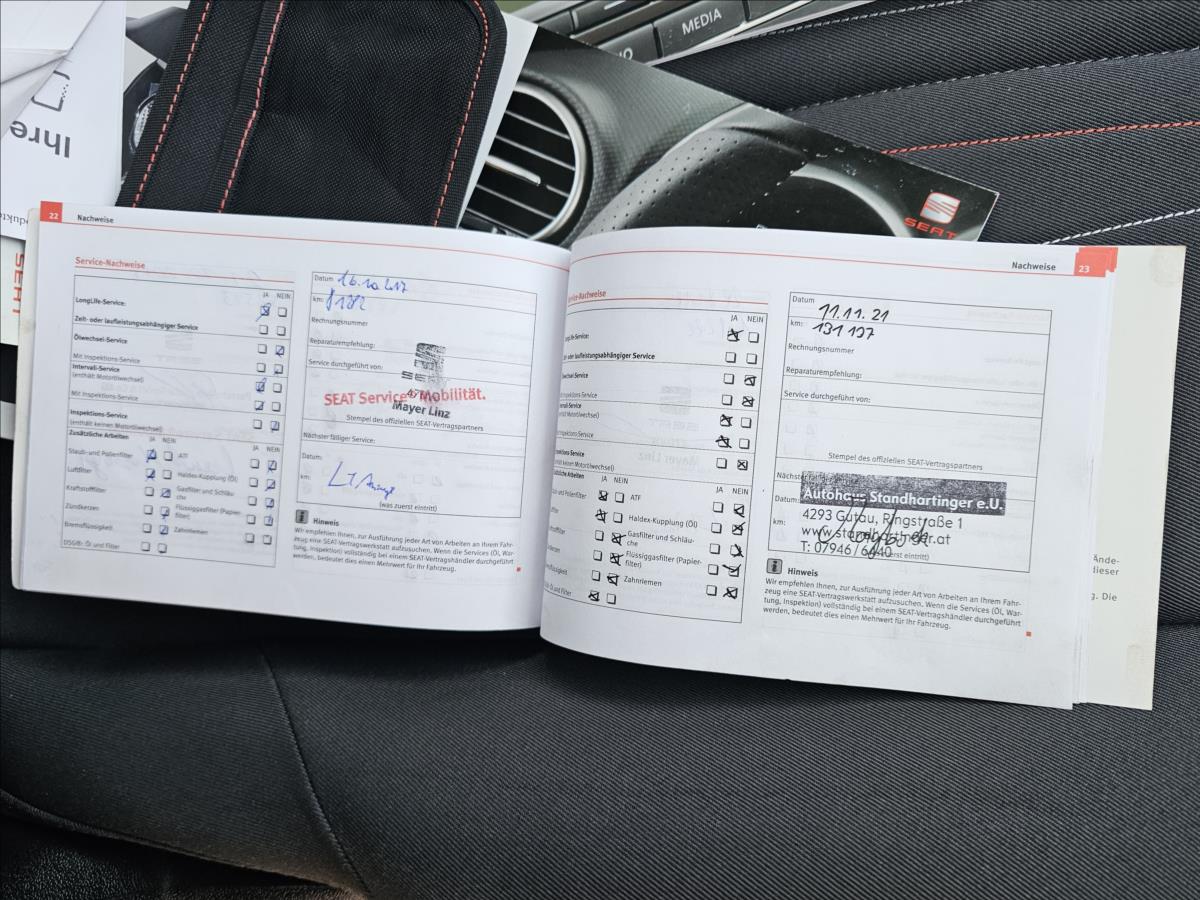 MEDIA
Ihre
SEAT
SEAT
22 Nachweise
Service-Nachweise
JA NEIN
LongLife-Service:
Zeit- oder laufleistungsabhängiger Service
Ölwechsel-Service
Mit Inspektions-Service
Intervall-Service
(enthält Motorölwechsel)
Mit Inspektions-Service
Inspektions-Service
(enthält keinen Motorölwechsel)
Zusätzliche Arbeiten
JA NEIN
JA NEIN
Staub- und Pollenfilter
ATF
Luftfilter
Haldex-Kupplung (Öl)
Kraftstofffilter
Gasfilter und Schläu-
che
Zündkerzen
Flüssiggasfilter (Papier-
filter)
Bremsflüssigkeit
Zahnriemen
DSG®: Öl und Filter
Datum
km:
Rechnungsnummer
Reparaturempfehlung:
Service durchgeführt von:
SEAT Service Mobilität.
Mayer Linz
Stempel des offiziellen SEAT-Vertragspartners
Nächster fälliger Service:
Datum:
km:
(was zuerst eintritt)
Hinweis
Wir empfehlen Ihnen, zur Ausführung jeder Art von Arbeiten an Ihrem Fahr-
zeug eine SEAT-Vertragswerkstatt aufzusuchen. Wenn die Services (Öl, War-
tung, Inspektion) vollständig bei einem SEAT-Vertragshändler durchgeführt
werden, bedeutet dies einen Mehrwert für Ihr Fahrzeug.
Nachweise 23
Service-Nachweise
JA NEIN
Life-Service:
oder laufleistungsabhängiger Service
wechsel-Service
Inspektions-Service
Zusätzliche Arbeiten
JA NEIN
JA NEIN
Pollenfilter
ATF
Haldex-Kupplung (Öl)
Gasfilter und Schläu-
che
Flüssiggasfilter (Papier-
filter)
Zahnriemen
Öl und Filter
Datum 11.11.21
km: 131 197
Rechnungsnummer
Reparaturempfehlung:
Service durchgeführt von:
Stempel des offiziellen SEAT-Vertragspartners
Autohaus Standhartinger e.U.
Datum:
4293 Gutau, Ringstraße 1
km:
www.standhartinger.at
T: 07946 / 6640
zuerst eintritt)
Hinweis
Wir empfehlen Ihnen, zur Ausführung jeder Art von Arbeiten an Ihrem Fahr-
zeug eine SEAT-Vertragswerkstatt aufzusuchen. Wenn die Services (Öl, War-
tung, Inspektion) vollständig bei einem SEAT-Vertragshändler durchgeführt
werden, bedeutet dies einen Mehrwert für Ihr Fahrzeug.
Ände-
dieser
g. Die